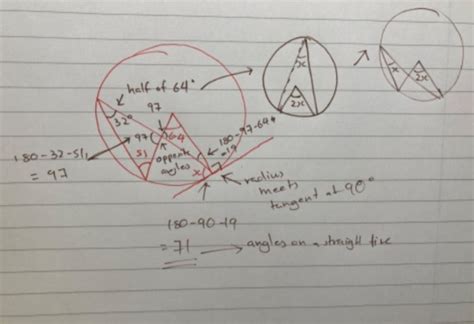 half of 64°
97
32°
x
2x
x
2x
180-32-51
= 97
97
64
51
opposite
angles
180-97-64
=19
x
radius
meets
tangent at 90°
180-90-19
= 71
angles on a straight line